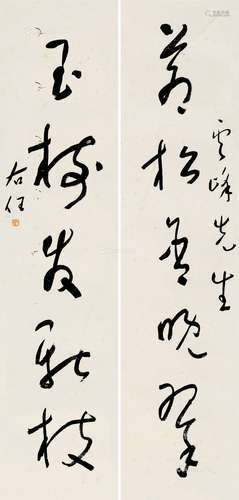 雲峰先生
蒼松含晚翠
玉樹發新枝
右任